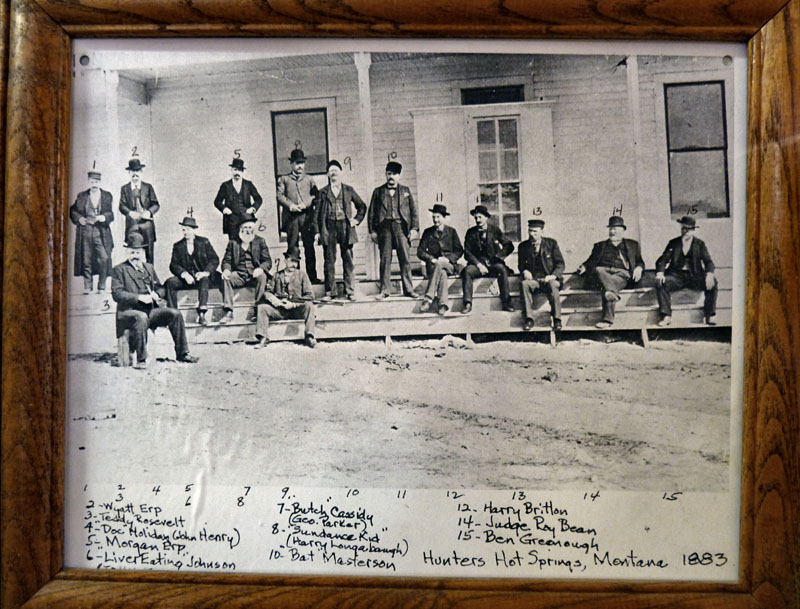 1 2 3 4 5 6 7 8 9 10 11 12 13 14 15
1 2 4 5 7 9 10 11 12 13 14 15
3 6 8
2-Wyatt Erp
3-Teddy Rosevelt
4-"Doc" Holiday (John Henry)
5-Morgan Erp
6-"Liver Eating" Johnson
7-"Butch" Cassidy
(Geo. Parker)
8-"Sundance Kid"
(Harry Longabaugh)
10-"Bat" Masterson
12-Harry Britton
14-Judge Roy Bean
15-Ben Greenough
Hunters Hot Springs, Montana 1883